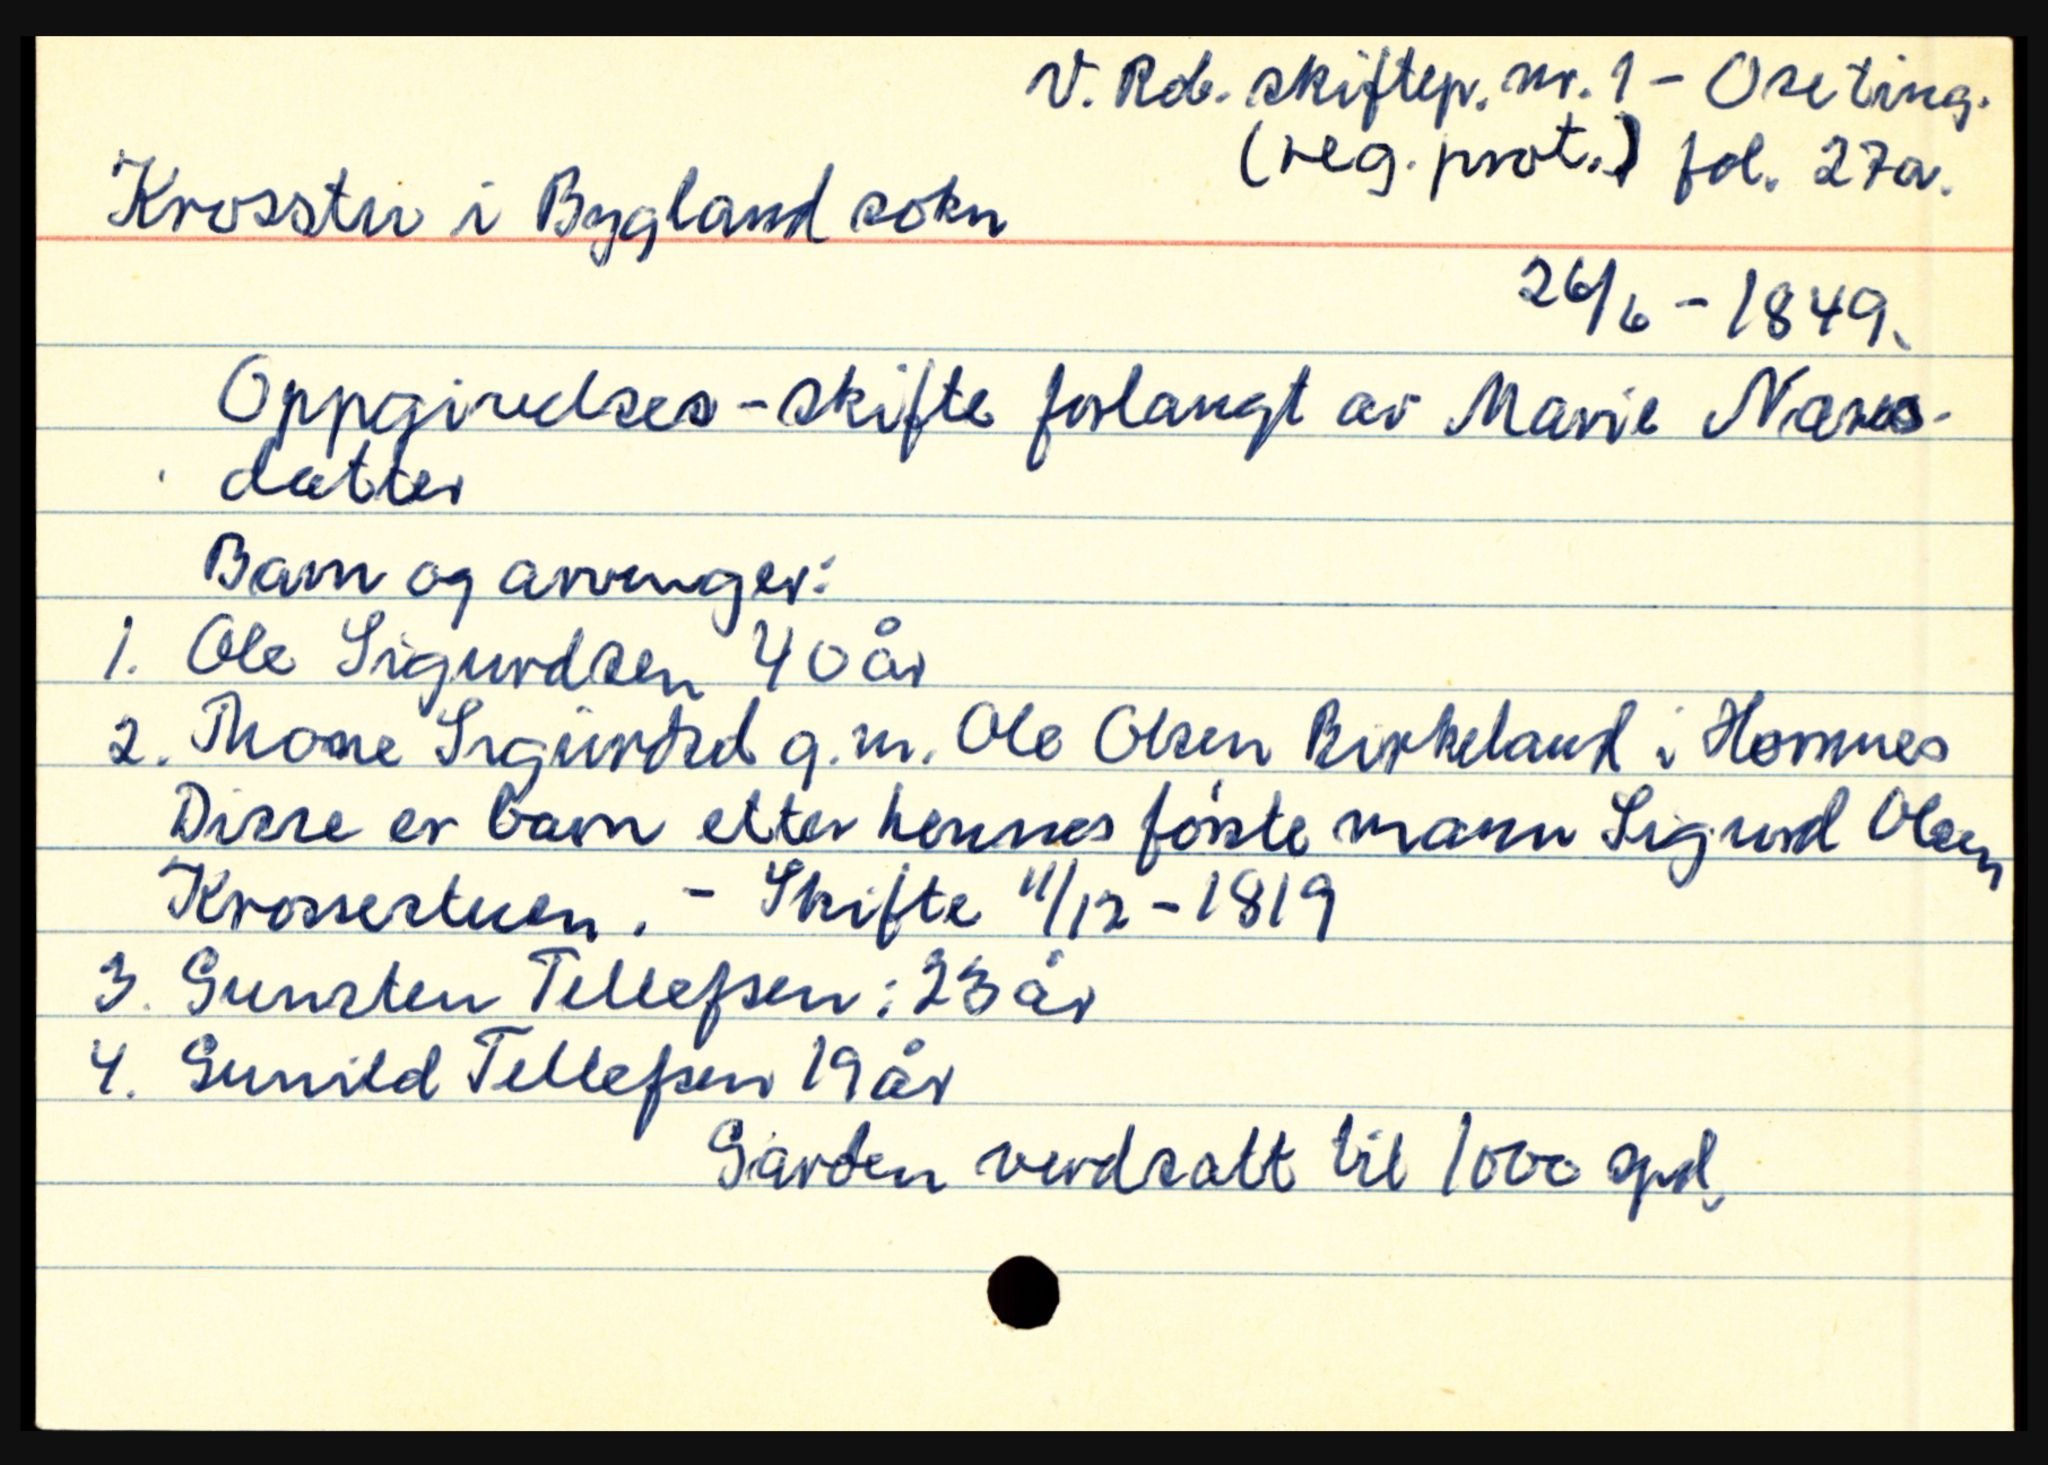 V. Rab. skiftepr. nr. 1 - Ose ting.
(reg. prot.) fol. 27a.
Krosstu i Bygland sokn
26/6 - 1849.
Oppgivelses-skifte forlangt av Marie Næses-
datter
Barn og arvinger:
1. Ole Sigurdsen 40 år
2. Thone Sigurdsd g.m. Ole Olsen Birkeland i Hornnes
Disse er barn etter hennes første mann Sigurd Olsen
Krossestuen. - Skifte 11/12 - 1819
3. Gunsten Tellefsen: 23 år
4. Gunild Tellefsen 19 år
Garden verdsatt til 1000 spd.